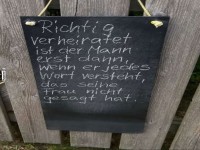 Richtig
verheiratet
ist der Mann
erst dann,
wenn er jedes
Wort versteht,
das seine
Frau nicht
gesagt hat.